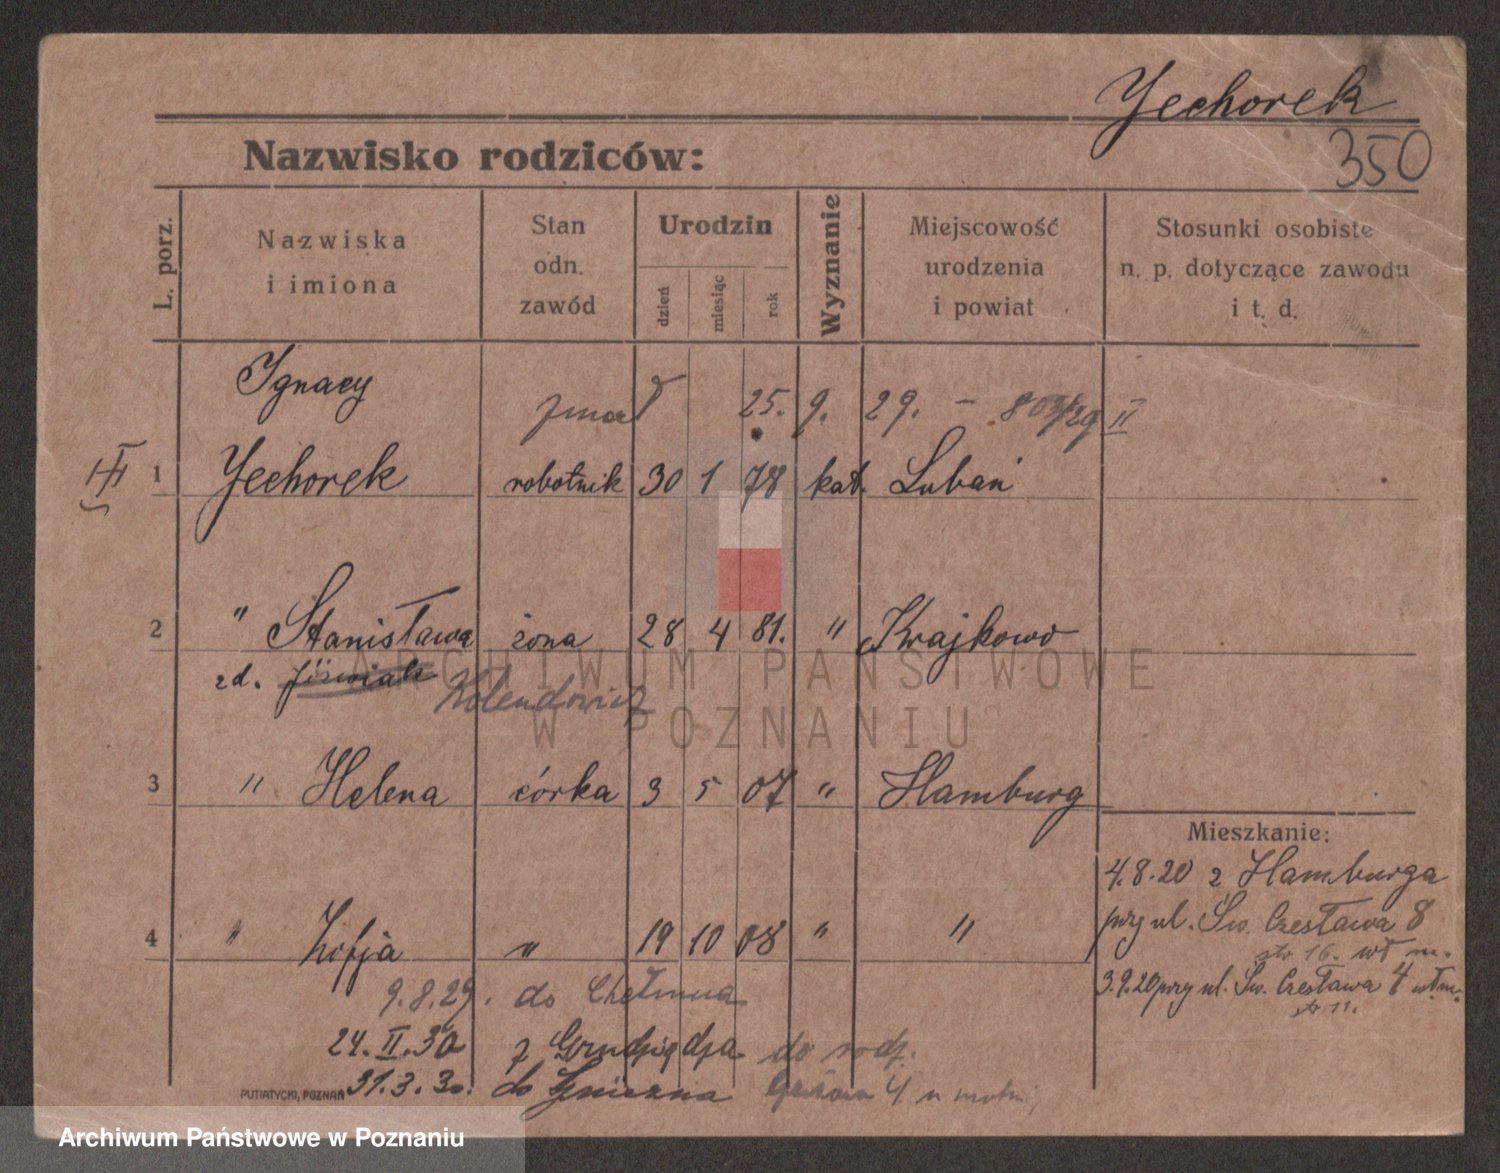 Yechorek
350
Nazwisko rodziców:
L. porz.
Nazwiska
i imiona
Stan
odn.
zawód
Urodzin
dzień
miesiąc
rok
Wyznanie
Miejscowość
urodzenia
i powiat
Stosunki osobiste
n. p. dotyczące zawodu
i t. d.
Ignacy
zmarł 25. 9. 29. – 803/29 II
III
1 Yechorek robotnik 30 1 78 kat. Lubań
2 " Stanisława żona 28 4 81. " Krajkowo
zd. Jóźwiak Kolendowicz
3 " Helena córka 3 5 07 " Hamburg
Mieszkanie:
4.8.20 z Hamburga
przy ul. Św. Czesława 8
str 16. wł m.
3.9.20 przy ul. Św. Czesława 4 wł m.
str 11.
4 " Zofja " 19 10 08 " "
9.8.29. do Chełmna
24. II. 30 z Grudziądza do rodz.
31.3.30. do Gniezna 4. u
PUTIATYCKI, POZNAŃ
ARCHIWUM PAŃSTWOWE
W POZNANIU
Archiwum Państwowe w Poznaniu